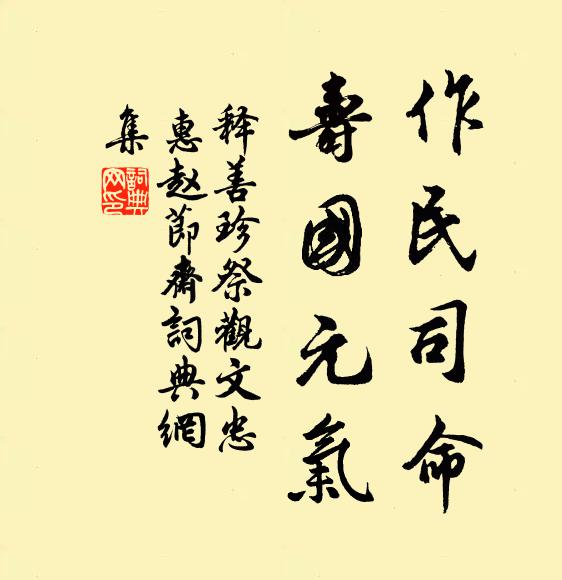 作民司命
壽國元氣
释善珍祭觀文忠
惠赵節齋詞典網
集
詞典網印